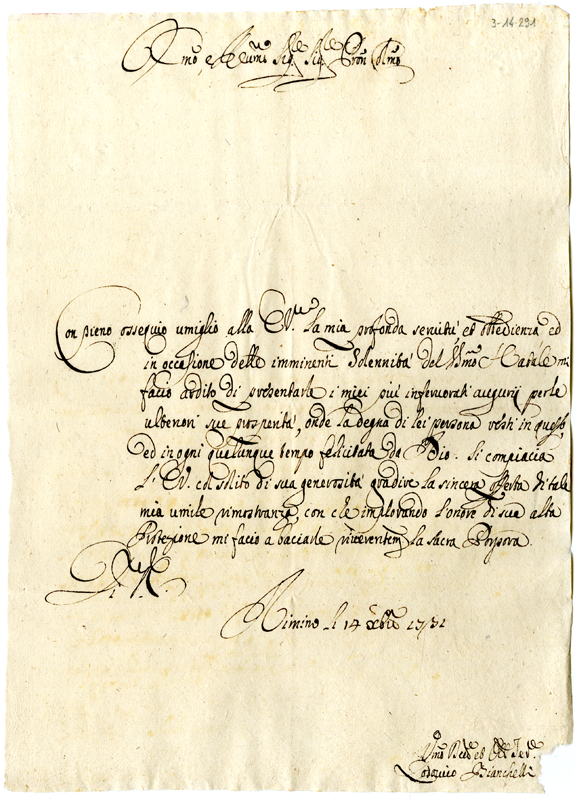 3-14-291
Emo e Rmo Sig.re Sig.re Pron Colmo
Con pieno ossequio umiglio alla E.V. la mia profonda servitù et obbedienza ed
in occasione delle imminenti Solennità del Ssmo Natale mi
facio ardito di presentarle i miei più infervorati augurij per le
ulteriori sue prosperità, onde la degna di lei persona resti in queste,
ed in ogni qualunque tempo felicitata da Dio. Si compiacia
l'E.V. col solito di sua generosità gradire la sincera offerta di tale
mia umile rimostranza, con che implorando l'onore di sua alta
Protezione mi facio a baciarle riverentem.te la Sacra Porpora.
Rimino li 14 Xbre 1731
Umo
Lodovico Bianchelli